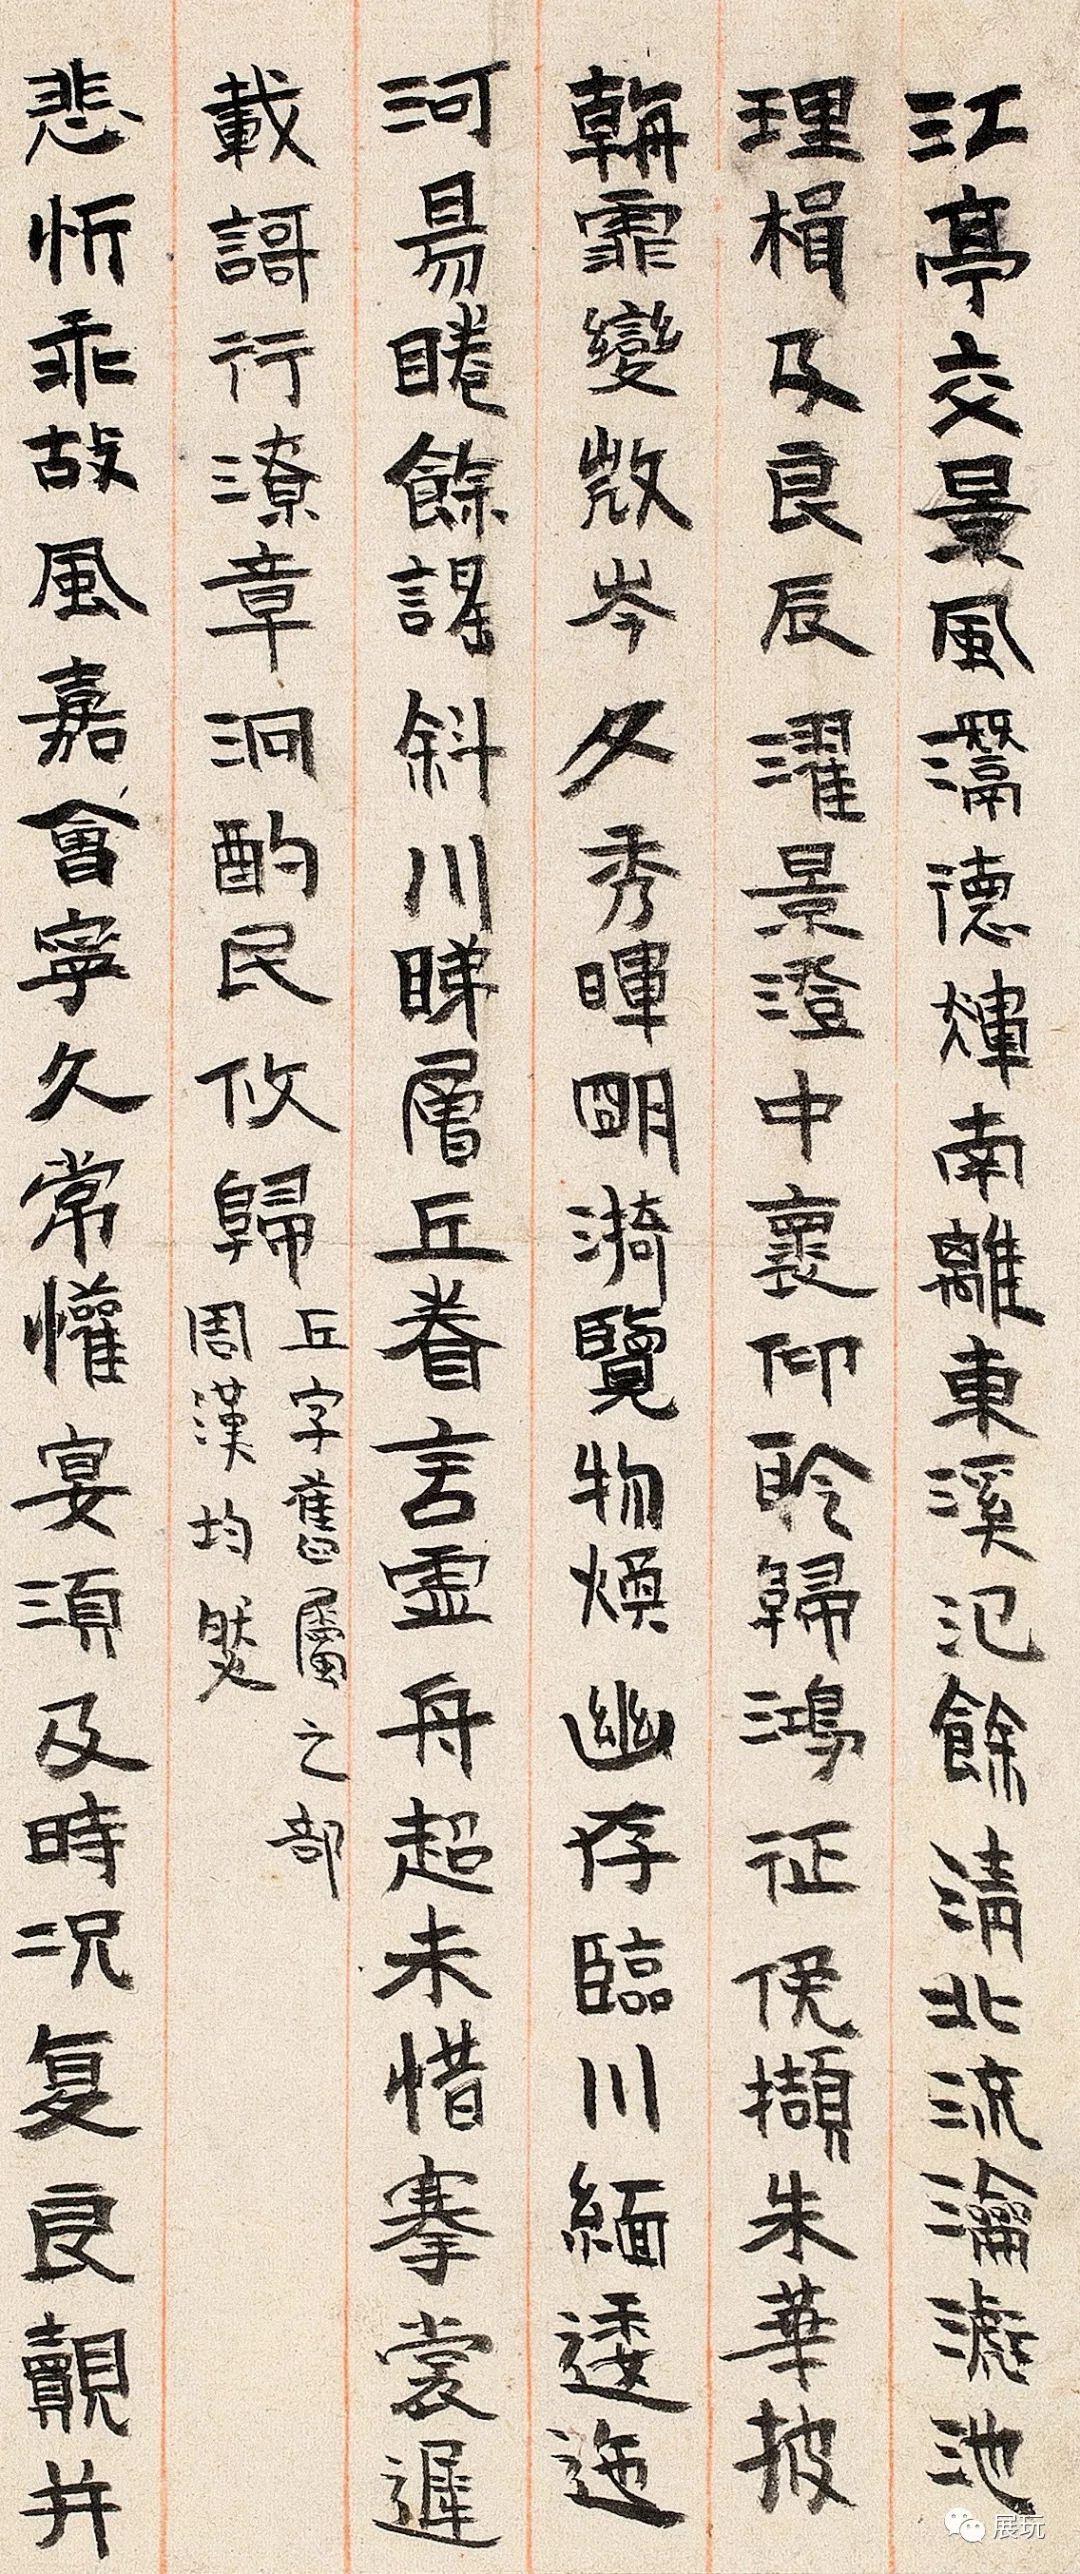 江亭交景風灊德煇南離東溪氾餘清北流瀹滮池
理楫及良辰濯景澄中裏仰聆歸鴻征俛擷朱華披
翰霏變微岑夕秀暉明漪覽物煥幽存臨川緬逶迤
河昜睠餘謌斜川睇層丘眷言靈舟超未惜搴裳遲
載謌行潦章泂酌民攸歸
丘字舊屬之部
周漢均然
悲忻乖故風嘉會寧久常懽宴須及時况复良覿并
展玩